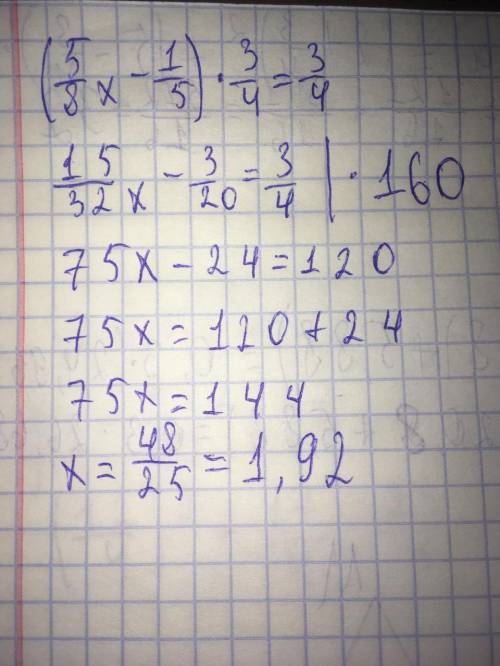 (5/8 x - 1/5) · 3/4 = 3/4
15/32 x - 3/20 = 3/4 | · 160
75x - 24 = 120
75x = 120 + 24
75x = 144
x = 48/25 = 1,92